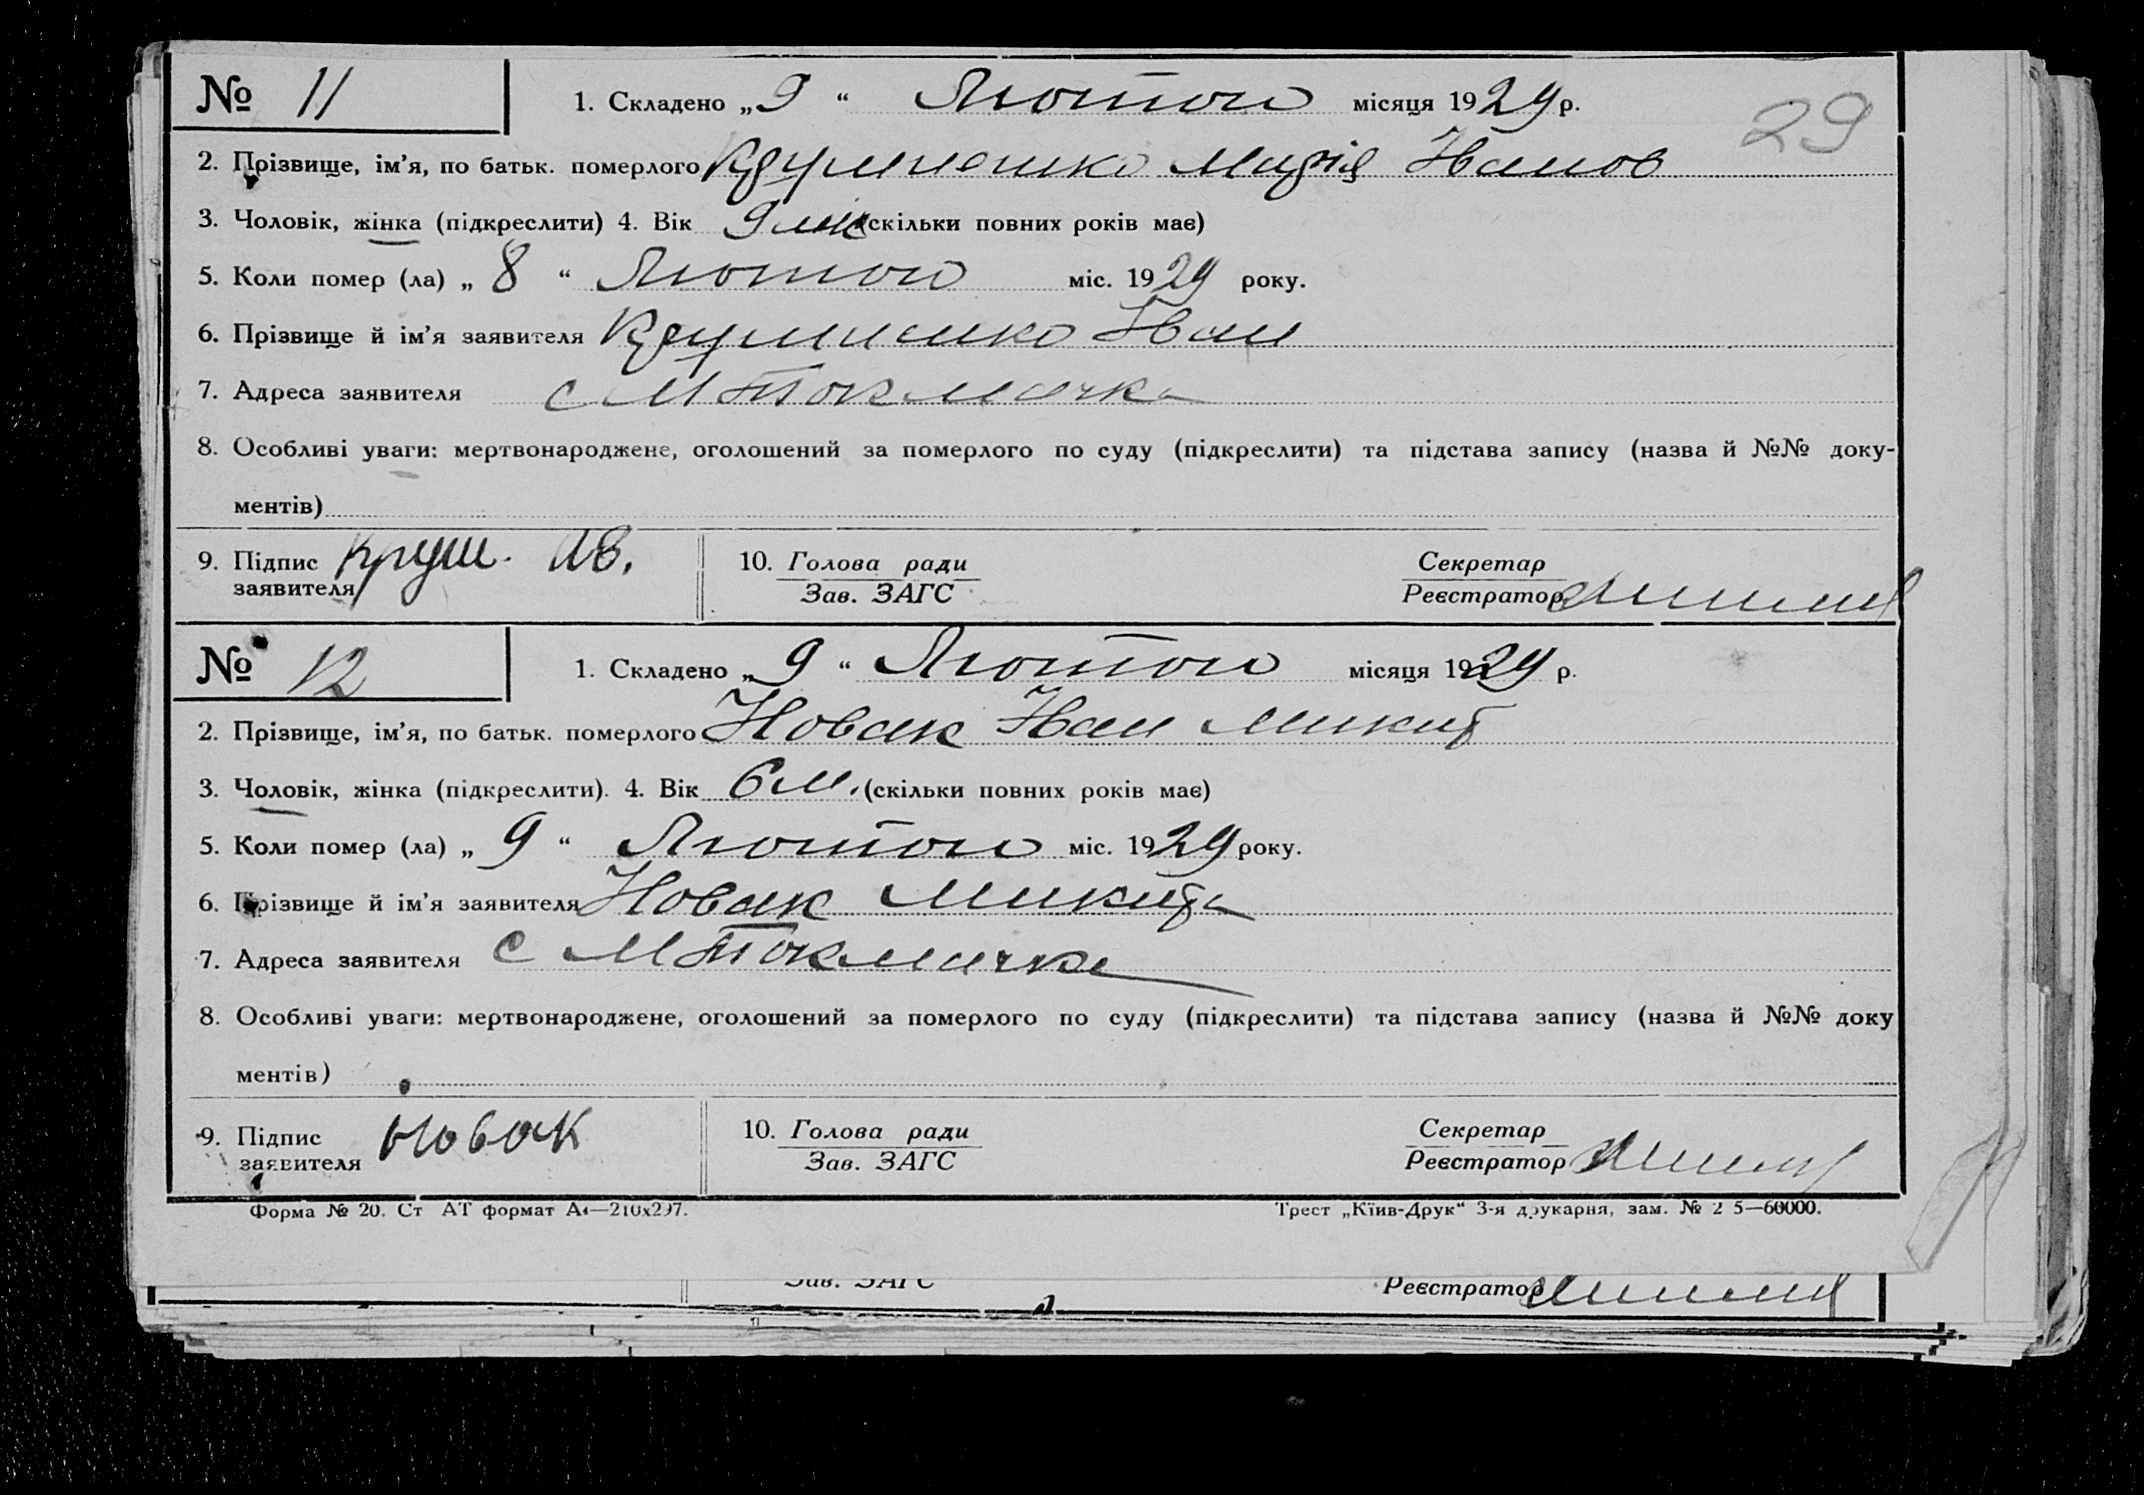 № 11 1. Складено „9“ Лютого місяця 1929 р.
29
2. Прізвище, ім'я, по батьк. померлого Марія Іванов
3. Чоловік, жінка (підкреслити) 4. Вік 9 (скільки повних років має)
5. Коли помер (ла) „8“ Лютого міс. 1929 року.
6. Прізвище й ім'я заявителя Іван
7. Адреса заявителя с М Токмачка
8. Особливі уваги: мертвонароджене, оголошений за померлого по суду (підкреслити) та підстава запису (назва й №№ доку-
ментів)
9. Підпис Круш. Ив. 10. Голова ради Секретар
заявителя Зав. ЗАГС Реєстратор
№ 12 1. Складено „9“ Лютого місяця 1929 р.
2. Прізвище, ім'я, по батьк. померлого Новак Іван Микит
3. Чоловік, жінка (підкреслити). 4. Вік 6 м. (скільки повних років має)
5. Коли помер (ла) „9“ Лютого міс. 1929 року.
6. Прізвище й ім'я заявителя Новак Микита
7. Адреса заявителя с М Токмачка
8. Особливі уваги: мертвонароджене, оголошений за померлого по суду (підкреслити) та підстава запису (назва й №№ доку
ментів)
9. Підпис Новак 10. Голова ради Секретар
заявителя Зав. ЗАГС Реєстратор
Форма № 20. Ст АТ формат А4—210х297. Трест „Київ-Друк“ 3-я друкарня, зам. № 2 5—60000.
Зав. ЗАГС Реєстратор